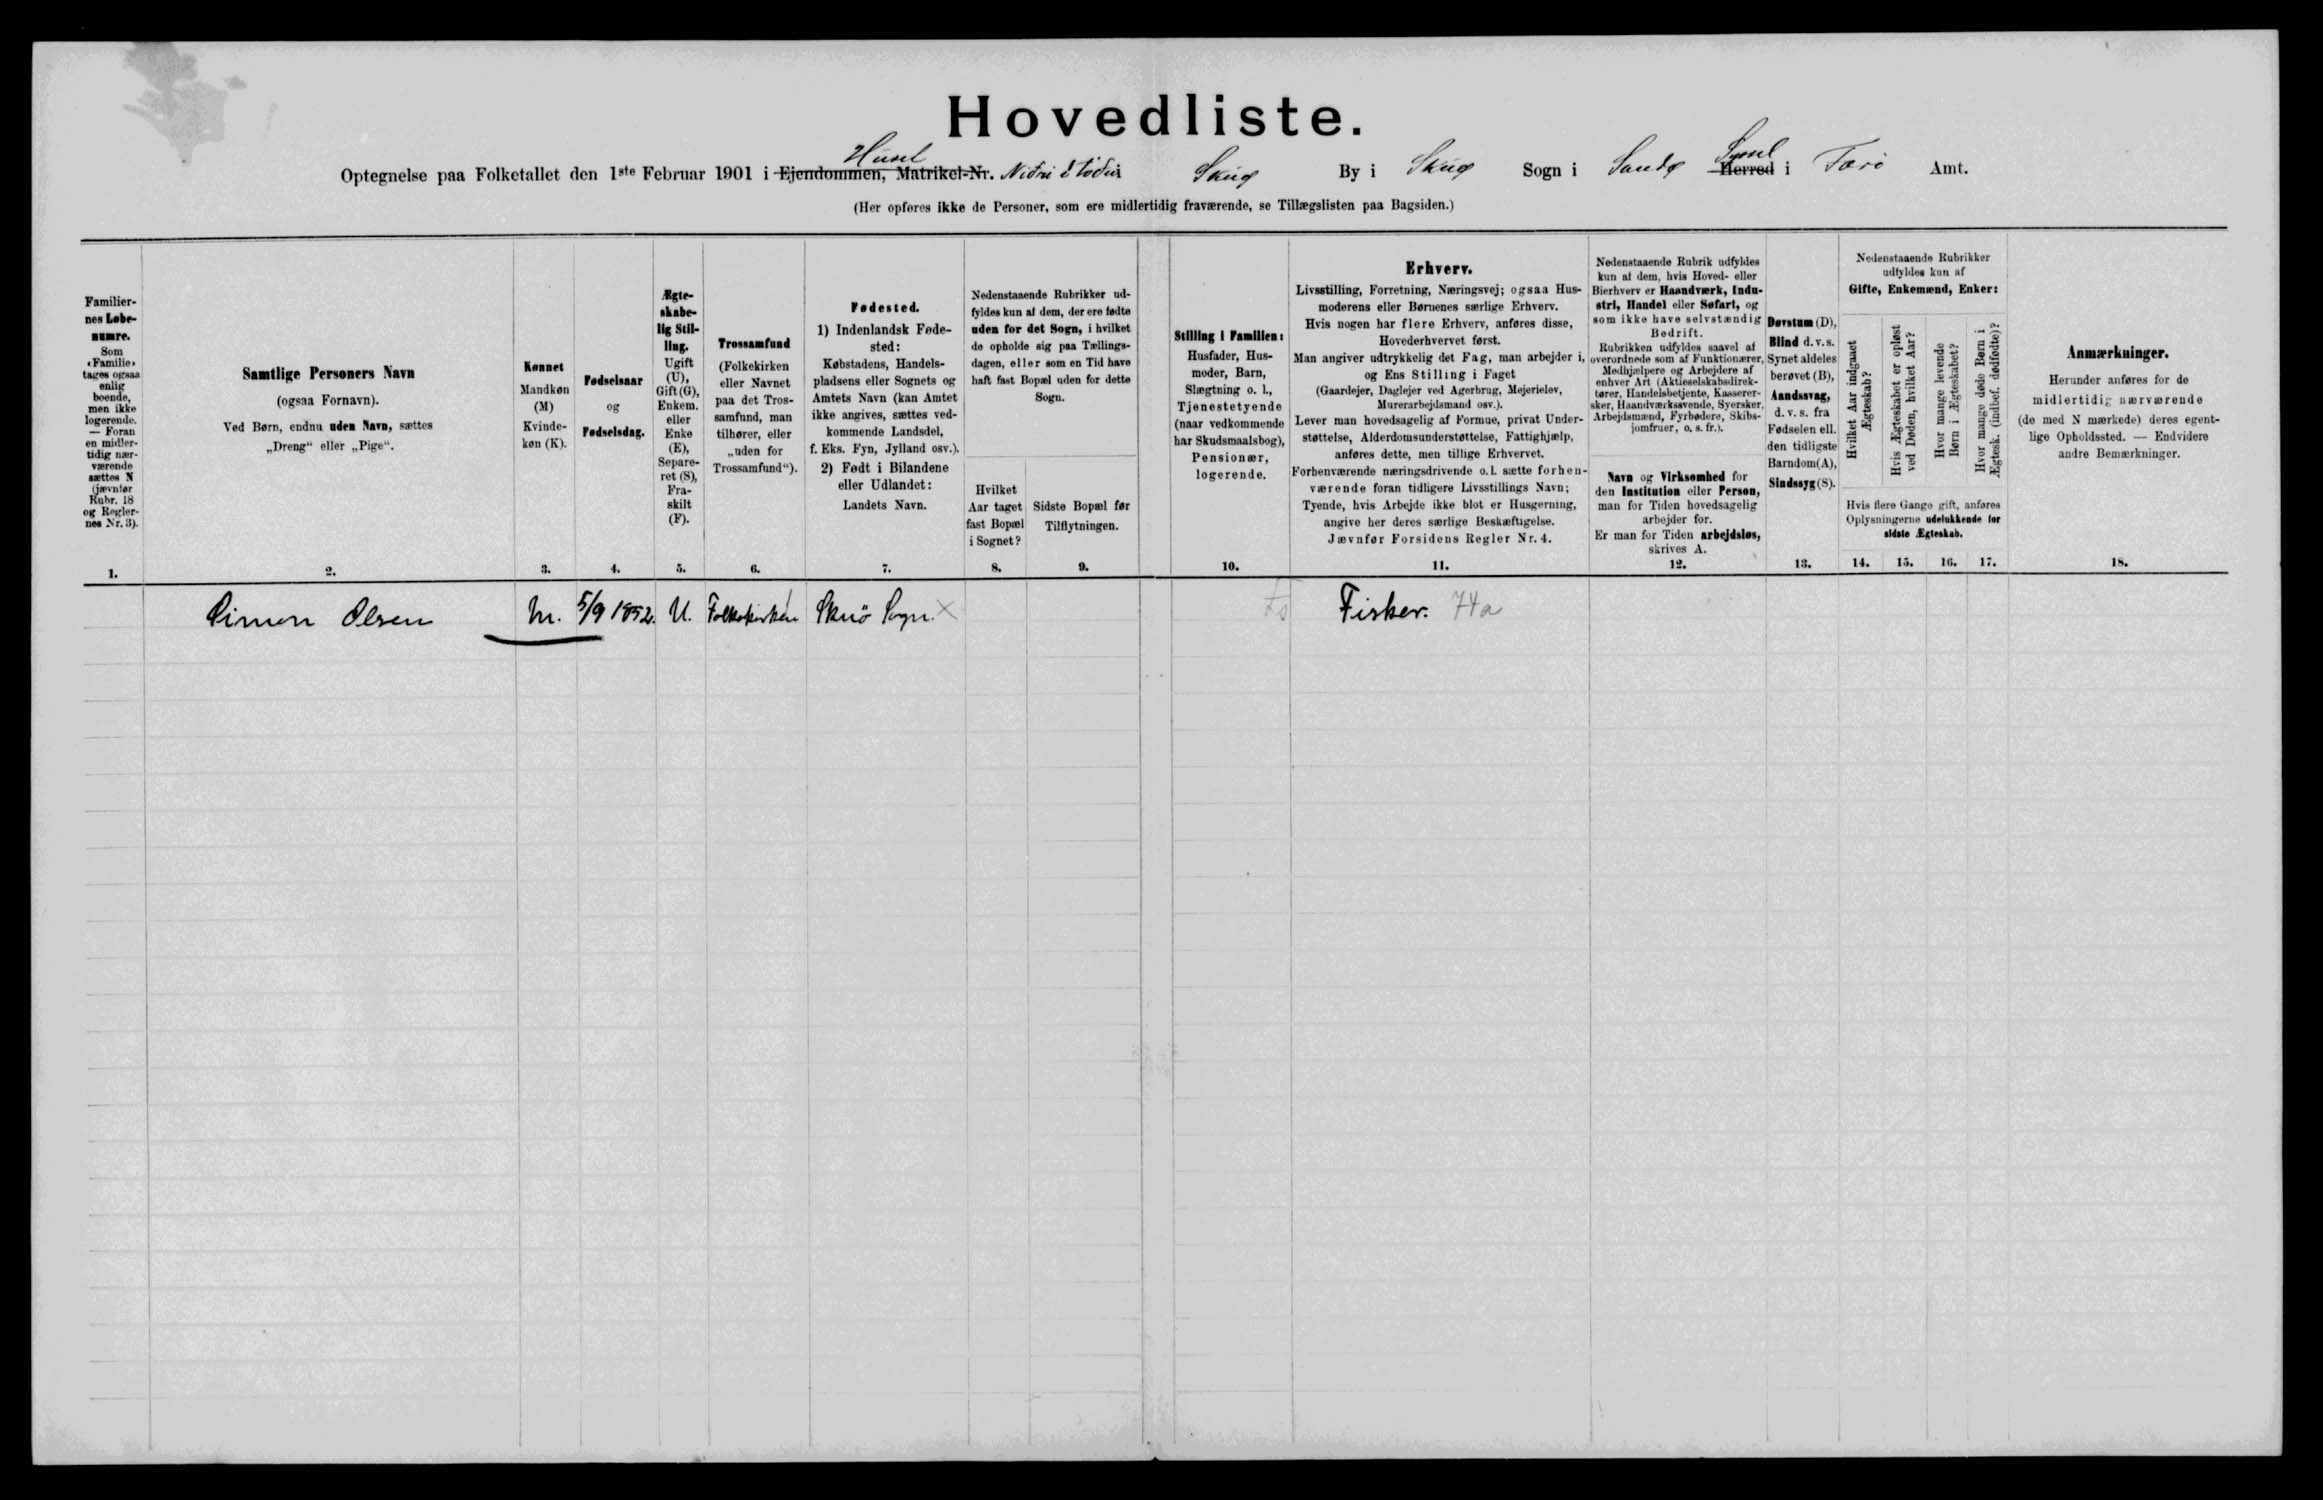 Hovedliste.
Husel
Syssel
Optegnelse paa Folketallet den 1ste Februar 1901 i Ejendommen, Matrikel-Nr. Nidri i Stodir Skuø By i Skuø Sogn i Sandø Herred i Færø Amt.
(Her opføres ikke de Personer, som ere midlertidig fraværende, se Tillægslisten paa Bagsiden.)
Familier-
nes Løbe-
numre.
Som
«Familie»
tages ogsaa
enlig
boende,
men ikke
logerende.
— Foran
en midler-
tidig nær-
værende
sættes N
(jævnfør
Rubr. 18
og Regler-
nes Nr. 3).
1.
Samtlige Personers Navn
(ogsaa Fornavn).
Ved Børn, endnu uden Navn, sættes
„Dreng“ eller „Pige“.
2.
Kønnet
Mandkøn
(M)
Kvinde-
køn (K).
3.
Fødselsaar
og
Fødselsdag.
4.
Ægte-
skabe-
lig Stil-
ling.
Ugift
(U),
Gift (G),
Enkem.
eller
Enke
(E),
Separe-
ret (S),
Fra-
skilt
(F).
5.
Trossamfund
(Folkekirken
eller Navnet
paa det Tros-
samfund, man
tilhører, eller
„uden for
Trossamfund“).
6.
Fødested.
1) Indenlandsk Føde-
sted:
Købstadens, Handels-
pladsens eller Sognets og
Amtets Navn (kan Amtet
ikke angives, sættes ved-
kommende Landsdel,
f. Eks. Fyn, Jylland osv.).
2) Født i Bilandene
eller Udlandet:
Landets Navn.
7.
Nedenstaaende Rubrikker ud-
fyldes kun af dem, der ere fødte
uden for det Sogn, i hvilket
de opholde sig paa Tællings-
dagen, eller som en Tid have
haft fast Bopæl uden for dette
Sogn.
Hvilket
Aar taget
fast Bopæl
i Sognet?
8.
Sidste Bopæl før
Tilflytningen.
9.
Stilling i Familien:
Husfader, Hus-
moder, Barn,
Slægtning o. l.,
Tjenestetyende
(naar vedkommende
har Skudsmaalsbog),
Pensionær,
logerende.
10.
Erhverv.
Livsstilling, Forretning, Næringsvej; ogsaa Hus-
moderens eller Børnenes særlige Erhverv.
Hvis nogen har flere Erhverv, anføres disse,
Hovederhvervet først.
Man angiver udtrykkelig det Fag, man arbejder i,
og Ens Stilling i Faget
(Gaardejer, Daglejer ved Agerbrug, Mejerielev,
Murerarbejdsmand osv.).
Lever man hovedsagelig af Formue, privat Under-
støttelse, Alderdomsunderstøttelse, Fattighjælp,
anføres dette, men tillige Erhvervet.
Forhenværende næringsdrivende o.l. sætte forhen-
værende foran tidligere Livsstillings Navn;
Tyende, hvis Arbejde ikke blot er Husgerning,
angive her deres særlige Beskæftigelse.
Jævnfør Forsidens Regler Nr. 4.
11.
Nedenstaaende Rubrik udfyldes
kun af dem, hvis Hoved- eller
Bierhverv er Haandværk, Indu-
stri, Handel eller Søfart, og
som ikke have selvstændig
Bedrift.
Rubrikken udfyldes saavel af
overordnede som af Funktionærer,
Medhjælpere og Arbejdere af
enhver Art (Aktieselskabsdirek-
tører, Handelsbetjente, Kasserer-
sker, Haandværkssvende, Syersker,
Arbejdsmænd, Fyrbødere, Skibs-
jomfruer, o. s. fr.).
Navn og Virksomhed for
den Institution eller Person,
man for Tiden hovedsagelig
arbejder for.
Er man for Tiden arbejdsløs,
skrives A.
12.
Døvstum (D),
Blind d. v. s.
Synet aldeles
berøvet (B),
Aandssvag,
d. v. s. fra
Fødselen ell.
den tidligste
Barndom (A),
Sindssyg (S).
13.
Nedenstaaende Rubrikker
udfyldes kun af
Gifte, Enkemænd, Enker:
Hvilket Aar indgaaet
Ægteskab?
Hvis Ægteskabet er opløst
ved Døden, hvilket Aar?
Hvor mange levende
Børn i Ægteskabet?
Hvor mange døde Børn i
Ægtesk. (indbef. dødfødte)?
Hvis flere Gange gift, anføres
Oplysningerne udelukkende for
sidste Ægteskab.
14. 15. 16. 17.
Anmærkninger.
Herunder anføres for de
midlertidig nærværende
(de med N mærkede) deres egent-
lige Opholdssted. — Endvidere
andre Bemærkninger.
18.
Simon Olsen M. 5/9 1852. U. Folkekirken Skuö Sogn. Fisker. 74a